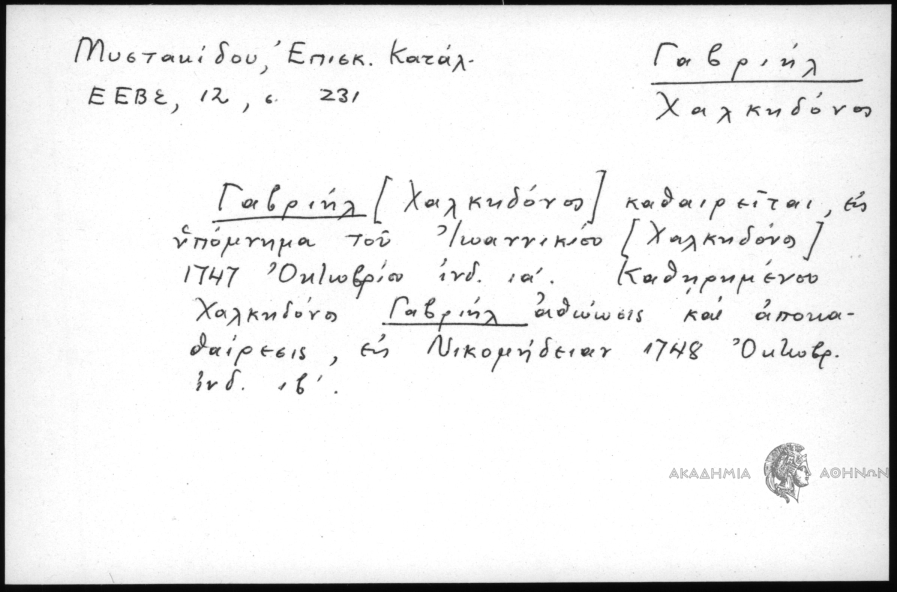 Μυστακίδου, Ἐπισκ. Κατάλ.
ΕΕΒΣ, 12, σ. 231
Γαβριήλ
Χαλκηδόνος
Γαβριήλ [Χαλκηδόνος] καθαιρεῖται, εἰς
ὑπόμνημα τοῦ Ἰωαννικίου [Χαλκηδόνος]
1747 Ὀκτωβρίου ἰνδ. ια΄. Καθηρημένου
Χαλκηδόνος Γαβριήλ ἀθώωσις καί ἀποκα-
θαίρεσις, εἰς Νικομήδειαν 1748 Ὀκτωβρ.
ἰνδ. ιβ΄.
ΑΚΑΔΗΜΙΑ ΑΘΗΝΩΝ